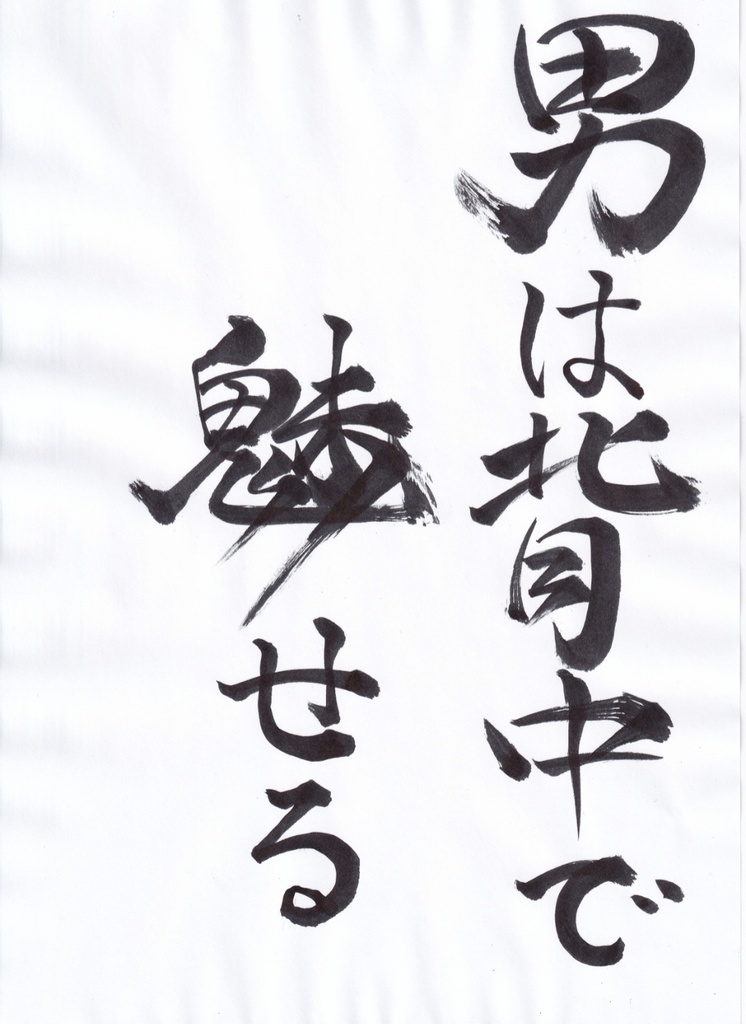 男は背中で
魅せる